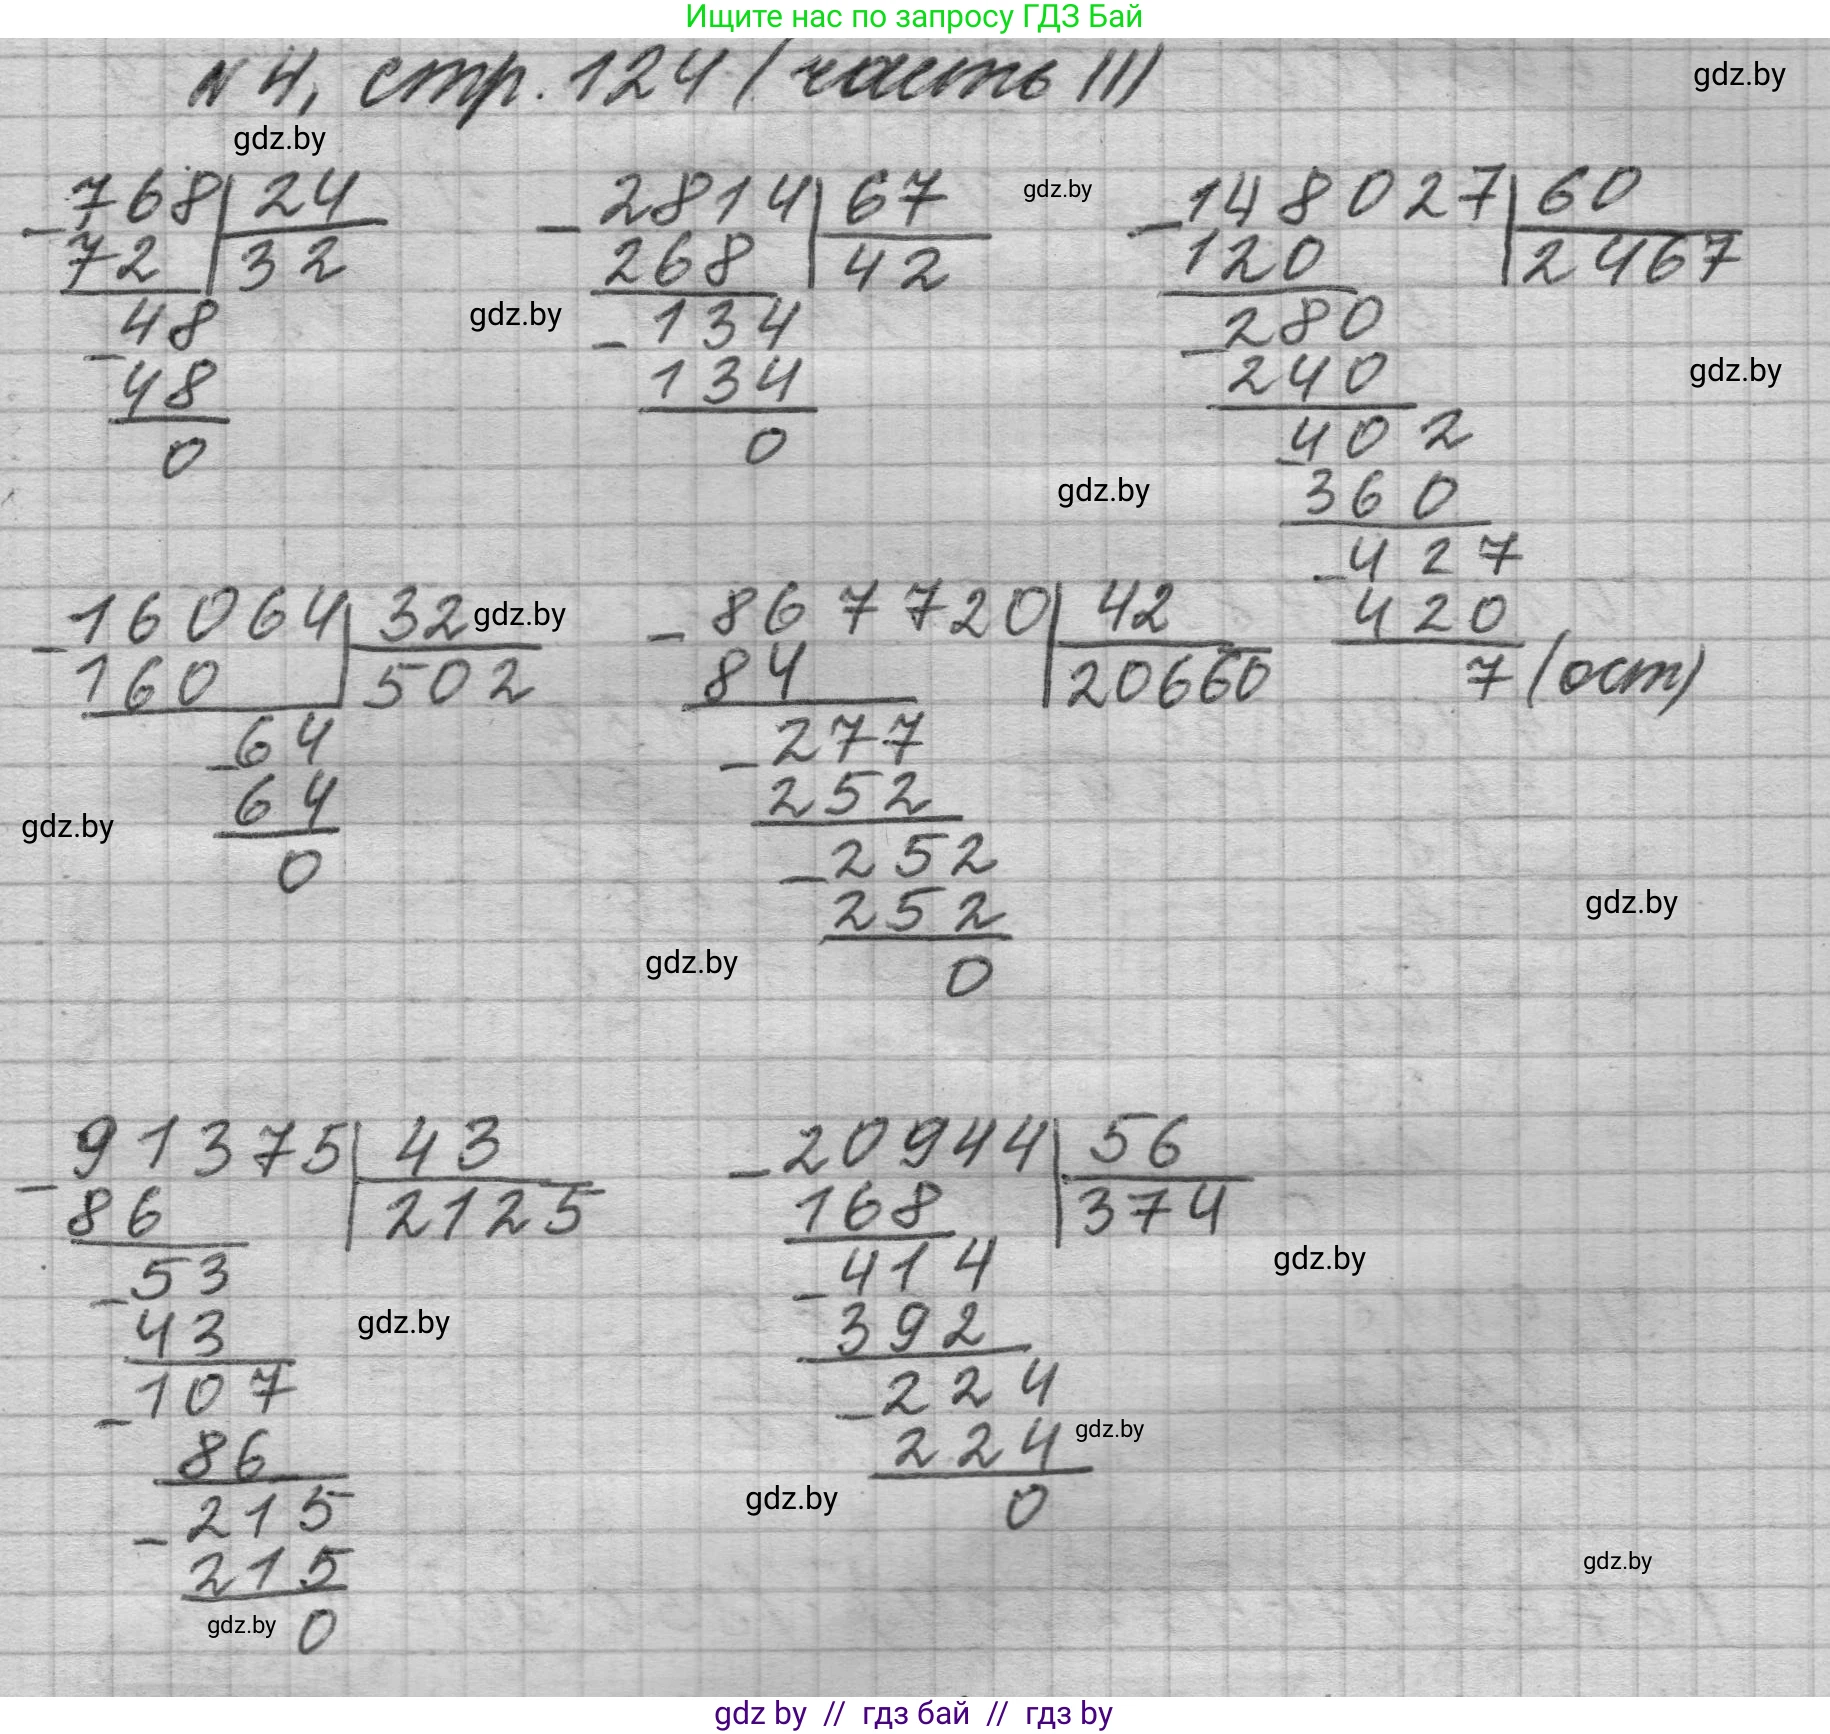 Ищите нас по запросу ГДЗ Бай
№ 4, стр. 124 (часть II)
gdz.by
gdz.by
768 24
- 72 32
48
- 48
0
gdz.by
2814 67
- 268 42
134
- 134
0
gdz.by
148027 60
- 120 2467
280
- 240
402
- 360
427
- 420
7 (ост)
gdz.by
gdz.by
16064 32
- 160 502
64
- 64
0
gdz.by
gdz.by
867720 42
- 84 20660
277
- 252
252
- 252
0
gdz.by
gdz.by
91375 43
- 86 2125
53
- 43
107
- 86
215
- 215
0
gdz.by
gdz.by
20944 56
- 168 374
414
- 392
224
- 224
0
gdz.by
gdz.by
gdz.by
gdz.by
gdz by // гдз бай // гдз by